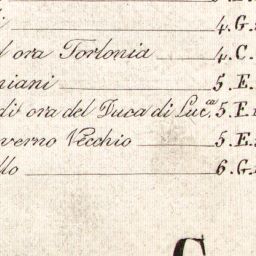 i 4.G.
l ora Torlonia 4.C.
niani 5.E.
di ora del Duca di Luc.ca 5.E.
verno Vecchio 5.E.
llo 6.G.